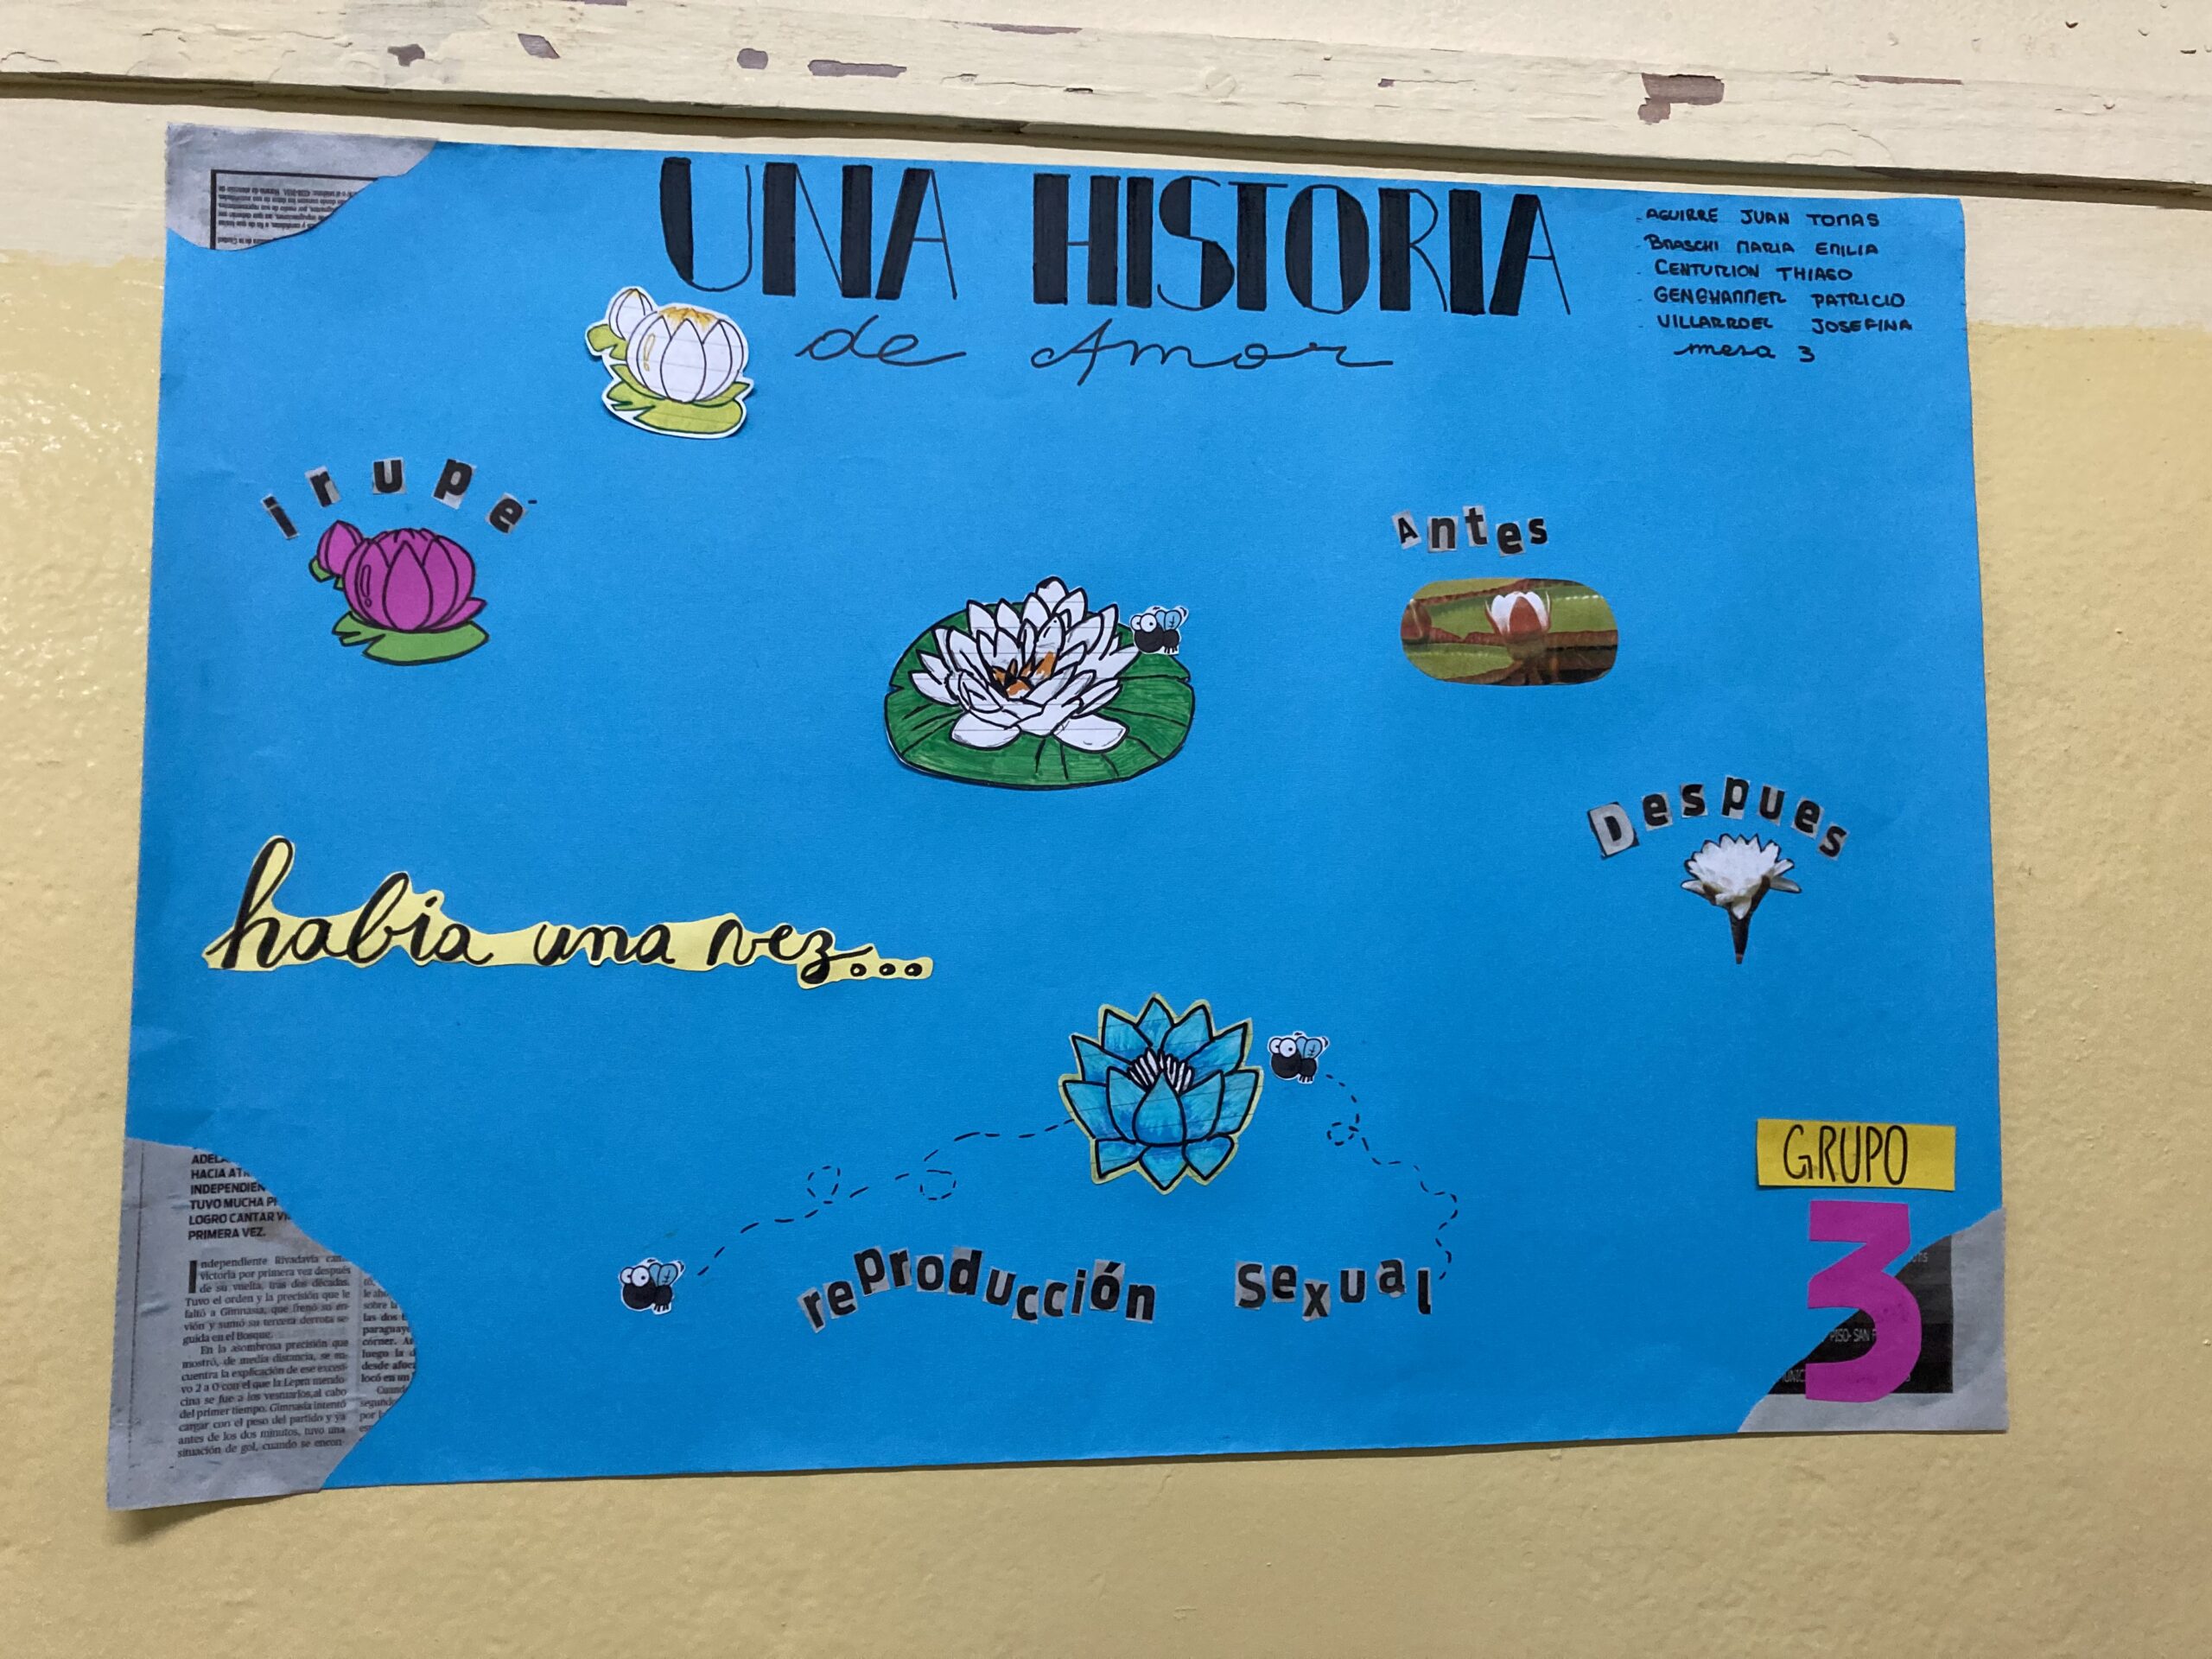 UNA HISTORIA
de Amor
- AGUIRRE JUAN TOMAS
- BRASCHI MARIA EMILIA
- CENTURION THIAGO
- GENGHAMMER PATRICIO
- VILLARROEL JOSEFINA
mesa 3
irupé
Antes
Despues
habia una vez...
reproducción sexual
GRUPO
3
HACIA
INDEPENDIEN
TUVO MUCHA
LOGRO CANTAR
PRIMERA VEZ.
Independiente Rivadavia can-
victoria por primera vez después
de su vuelta, tras dos décadas.
Tuvo el orden y la precisión que le
faltó a Gimnasia, que frenó su en-
vión y sumó su tercera derrota se-
guida en el Bosque.
En la asombrosa precisión que
mostró, de media distancia, se en-
cuentra la explicación de ese excesi-
vo 2 a 0 con el que la Lepra mendo-
cina se fue a los vestuarios, al cabo
del primer tiempo. Gimnasia intentó
cargar con el peso del partido y ya
antes de los dos minutos, tuvo una
situación de gol, cuando se encon-
sobre la
las dos
paraguay
córner.
luego la
desde afue
locó en un
PISO- SAN